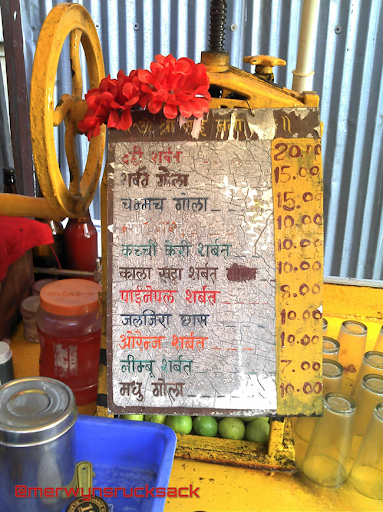 दही शर्बत 20.00
शर्बत गोला 15.00
चम्मच गोला 15.00
10.00
कच्ची केरी शर्बत 10.00
काला खट्टा शर्बत 10.00
पाईनेपल शर्बत 8.00
जलजिरा छास 10.00
ओरेन्ज शर्बत 10.00
लीम्बु शर्बत 7.00
मधु गोला 10.00
@merwynsrucksack